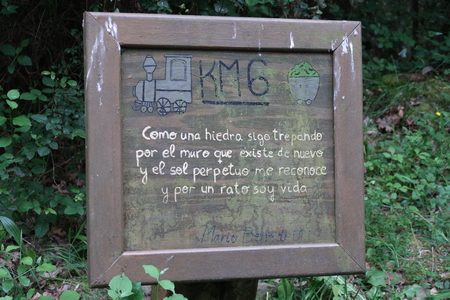 KM6
Como una hiedra sigo trepando
por el muro que existe de nuevo
y el sol perpetuo me reconoce
y por un rato soy vida
Mario